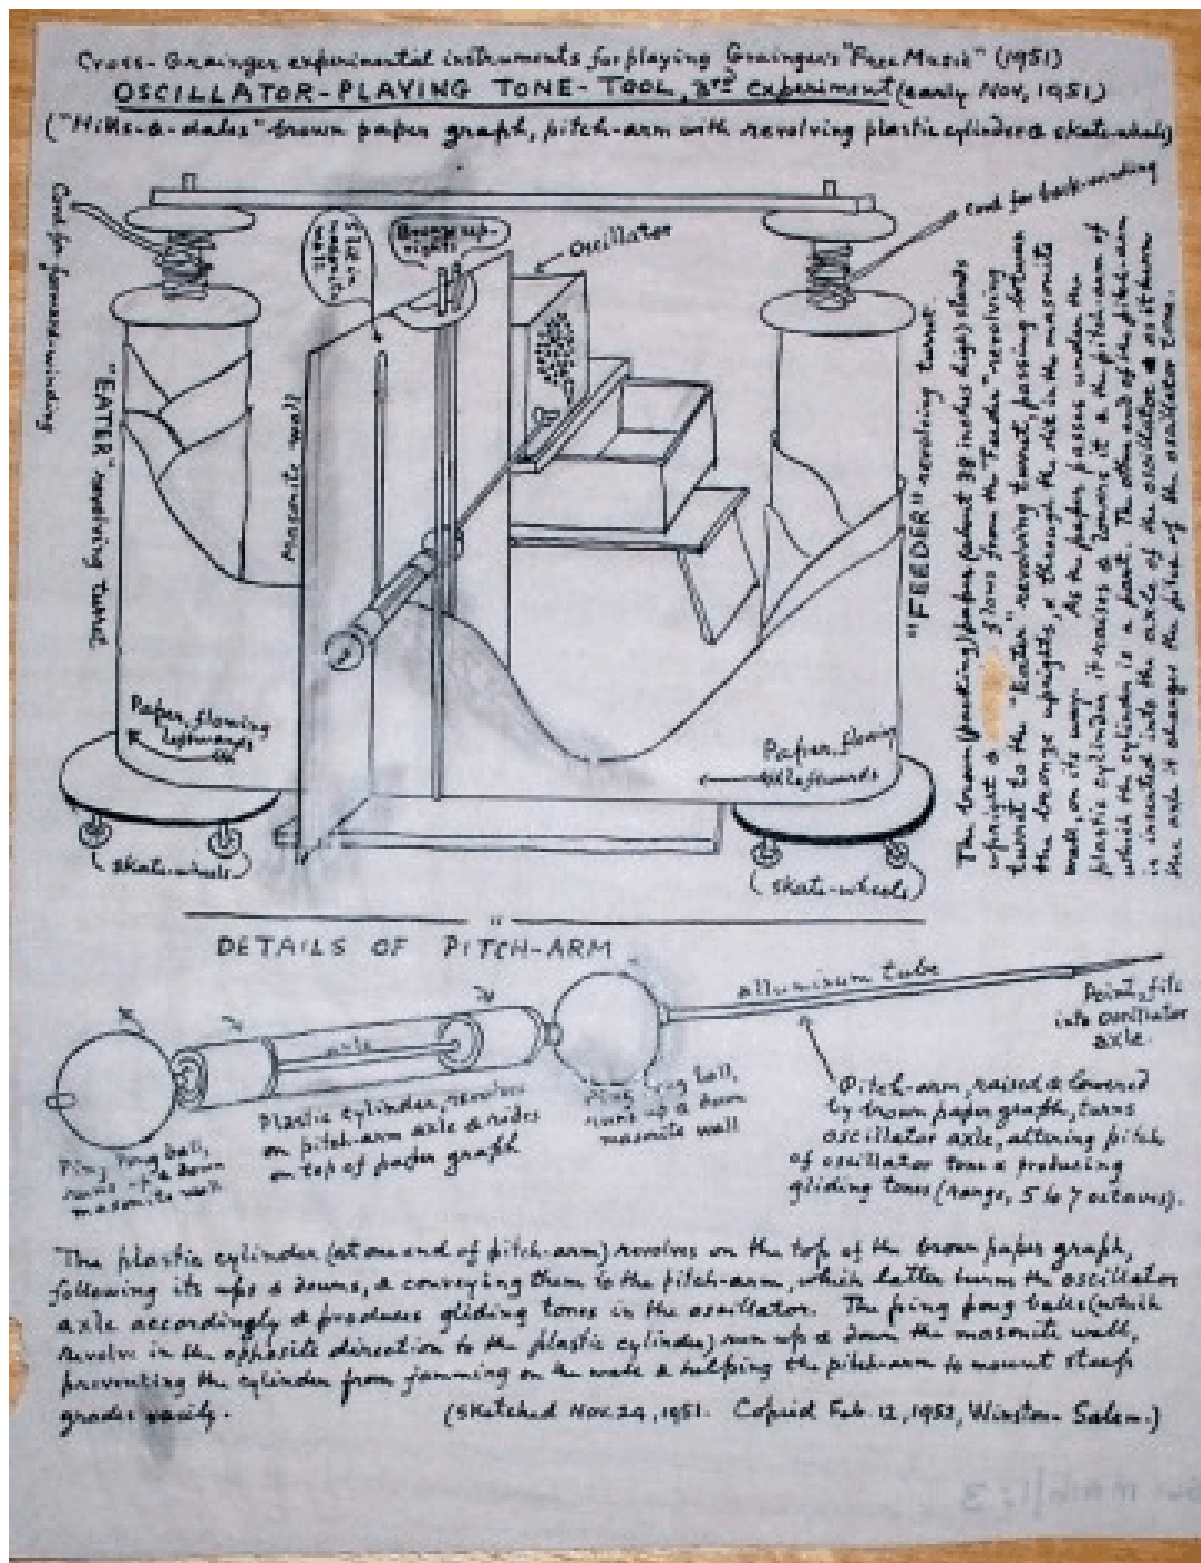 Cross-Grainger experimental instruments for playing Grainger's "Free Music" (1951)
OSCILLATOR-PLAYING TONE-TOOL, 3rd Experiment (early Nov, 1951)
("Hills-&-dales" brown paper graph, pitch-arm with revolving plastic cylinder & skate-wheels)
Cord for forward-winding
"EATER" revolving turret
Masonite wall
Slit in masonite wall
Bronze uprights
Oscillator
Cord for back-winding
"FEEDER" revolving turret
The brown (packing) paper (about 38 inches high) stands
upright & flows from the "Feeder" revolving
turret to the "Eater" revolving turret, passing between
the bronze uprights, & through the slit in the masonite
wall, on its way. As the paper passes under the
plastic cylinder it raises & lowers it & the pitch-arm of
which the cylinder is a part. The other end of the pitch-arm
is inserted into the axle of the oscillator & as it turns
the axle it changes the pitch of the oscillator tone.
Paper, flowing
leftwards
Paper, flowing
leftwards
(skate-wheels)
(skate-wheels)
DETAILS OF PITCH-ARM
alluminum tube
Point, fits
into oscillator
axle.
axle
Ping pong ball,
runs up & down
masonite wall
Plastic cylinder, revolves
on pitch-arm axle & rides
on top of paper graph
Ping pong ball,
runs up & down
masonite wall
Pitch-arm, raised & lowered
by brown paper graph, turns
oscillator axle, altering pitch
of oscillator tone & producing
gliding tones (range, 5 to 7 octaves).
The plastic cylinder (at one end of pitch-arm) revolves on the top of the brown paper graph,
following its ups & downs, & conveying them to the pitch-arm, which latter turns the oscillator
axle accordingly & produces gliding tones in the oscillator. The ping pong balls (which
revolve in the opposite direction to the plastic cylinder) run up & down the masonite wall,
preventing the cylinder from jamming on the wall & helping the pitch-arm to mount steep
grades easily.
(Sketched Nov. 24, 1951. Copied Feb. 12, 1952, Winston-Salem.)